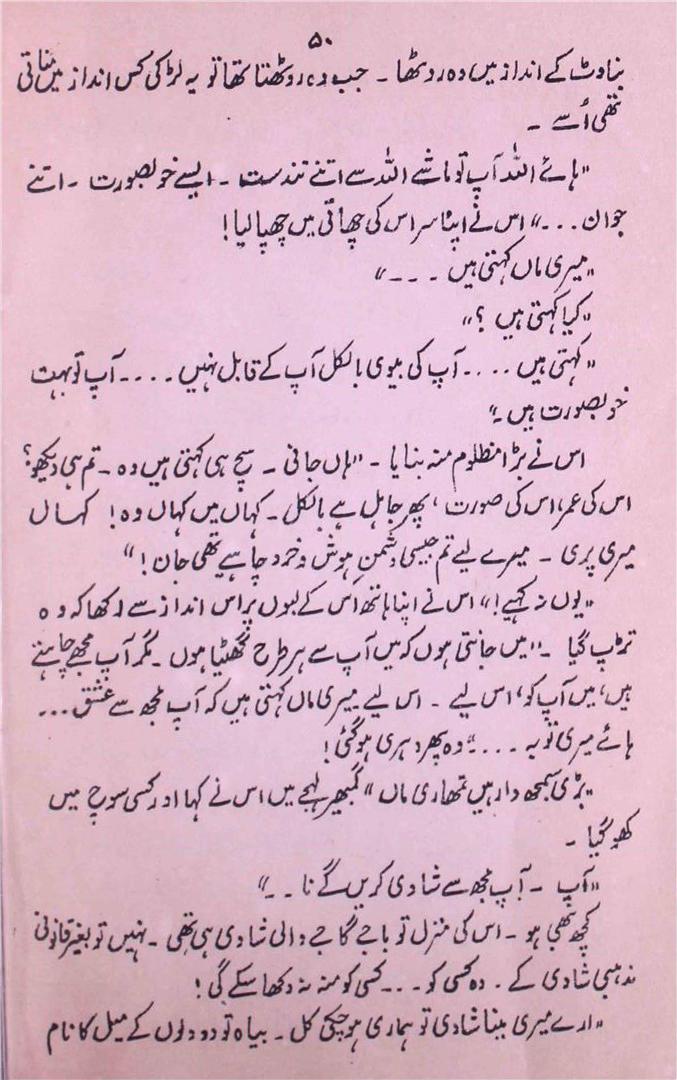 ۵۰
بناوٹ کے انداز میں وہ روٹھا ۔ جب وہ روٹھتا تھا تو یہ لڑکی کس انداز میں مناتی
تھی اُسے ۔
"ہائے اللہ آپ تو ماشے اللہ سے اتنے تندست ۔ ایسے خوبصورت ۔ اتنے
جوان ...." اس نے اپنا سر اس کی چھاتی میں چھپا لیا!
"میری ماں کہتی ہیں ۔۔۔"
"کیا کہتی ہیں ؟"
"کہتی ہیں .... آپ کی بیوی بالکل آپ کے قابل نہیں .... آپ تو بہت
خوبصورت ہیں۔"
اس نے بڑا مظلوم منہ بنایا ۔ "ہاں جانی ۔ سچ ہی کہتی ہیں وہ ۔ تم ہی دیکھو؟
اس کی عمر، اس کی صورت ، پھر جاہل ہے بالکل ۔ کہاں میں کہاں وہ! کہاں
میری پری ۔ میرے لیے تم جیسی دشمنِ ہوش و خرد چاہیے تھی جان!"
"یوں نہ کہیے!" اس نے اپنا ہاتھ اس کے لبوں پر اس انداز سے رکھا کہ وہ
تڑپ گیا ۔ "میں جانتی ہوں کہ میں آپ سے ہر طرح گھٹیا ہوں ۔ مگر آپ مجھے چاہتے
ہیں، میں آپ کو، اس لیے ۔ اس لیے میری ماں کہتی ہیں کہ آپ مجھ سے عشق ...
ہائے میری توبہ ...." وہ پھر دہری ہو گئی!
"بڑی سمجھ دار ہیں تمھاری ماں" گمبھیر لہجے میں اس نے کہا اور کسی سوچ میں
کھو گیا ۔
"آپ ۔ آپ مجھ سے شادی کریں گے نا ۔۔"
کچھ بھی ہو ۔ اس کی منزل تو باجے گاجے والی شادی ہی تھی ۔ نہیں تو بغیر قانونی
مذہبی شادی کے ۔ وہ کسی کو ... کسی کو منہ نہ دکھا سکے گی!
"ارے میری بینا شادی تو ہماری ہو چکی کل ۔ بیاہ تو دو دلوں کے میل کا نام